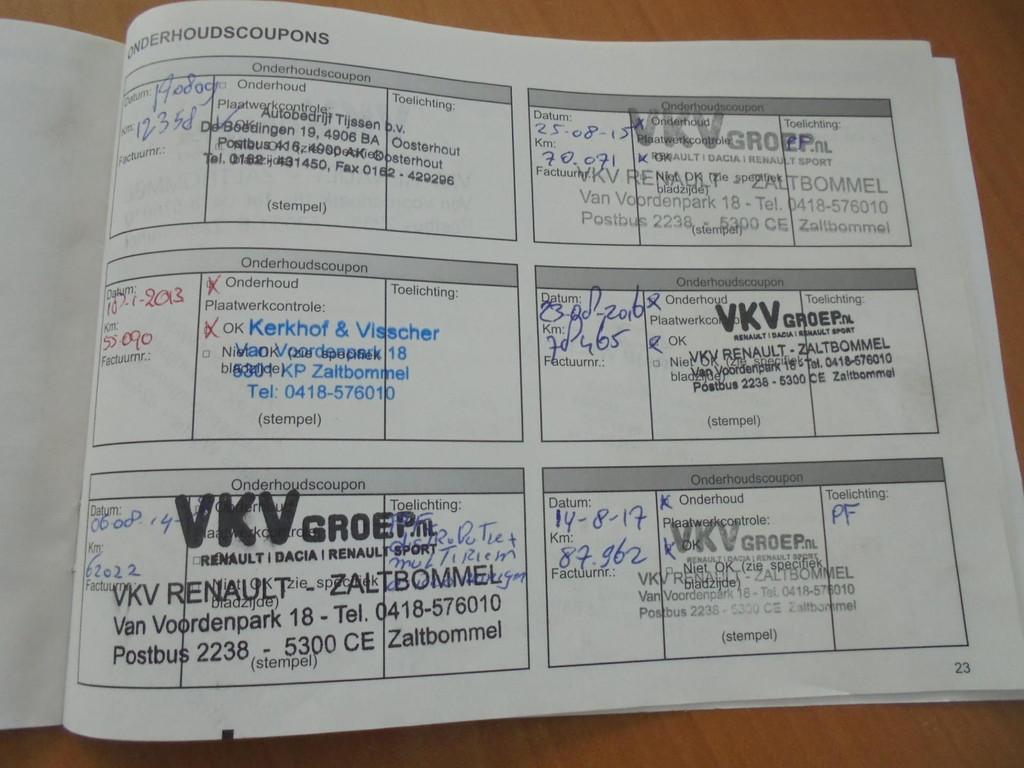 ONDERHOUDSCOUPONS
Onderhoudscoupon
Datum: 190809
Km: 12358
Factuurnr.:
Onderhoud
Plaatwerkcontrole:
OK
(stempel)
Toelichting:
Autobedrijf Tijssen b.v.
De Boedingen 19, 4906 BA Oosterhout
Postbus 416, 4900 AK Oosterhout
Tel. 0162 - 431450, Fax 0162 - 429296
Onderhoudscoupon
Datum:
-2013
Km:
55.090
Factuurnr.:
Onderhoud
Plaatwerkcontrole:
OK
Niet OK (zie specifiek
bladzijde)
(stempel)
Toelichting:
Kerkhof & Visscher
Van Voordenpark 18
5301 KP Zaltbommel
Tel: 0418-576010
Onderhoudscoupon
Datum:
06-08-14
Km:
62022
Factuurnr.:
Onderhoud
Plaatwerkcontrole:
OK
Niet OK (zie specifiek
bladzijde)
(stempel)
Toelichting:
VKV GROEP.NL
RENAULT I DACIA I RENAULT SPORT
VKV RENAULT - ZALTBOMMEL
Van Voordenpark 18 - Tel. 0418-576010
Postbus 2238 - 5300 CE Zaltbommel
Onderhoudscoupon
Datum:
25-08-15
Km:
70.071
Factuurnr.:
Onderhoud
Plaatwerkcontrole:
OK
Niet OK (zie specifiek
bladzijde)
(stempel)
Toelichting:
PF
VKV GROEP.NL
RENAULT I DACIA I RENAULT SPORT
VKV RENAULT - ZALTBOMMEL
Van Voordenpark 18 - Tel. 0418-576010
Postbus 2238 - 5300 CE Zaltbommel
Onderhoudscoupon
Datum:
23-08-2016
Km:
78465
Factuurnr.:
Onderhoud
Plaatwerkcontrole:
OK
Niet OK (zie specifiek
bladzijde)
(stempel)
Toelichting:
VKV GROEP.NL
RENAULT I DACIA I RENAULT SPORT
VKV RENAULT - ZALTBOMMEL
Van Voordenpark 18 - Tel. 0418-576010
Postbus 2238 - 5300 CE Zaltbommel
Onderhoudscoupon
Datum:
14-8-17
Km:
87.962
Factuurnr.:
Onderhoud
Plaatwerkcontrole:
OK
Niet OK (zie specifiek
bladzijde)
(stempel)
Toelichting:
PF
VKV GROEP.NL
RENAULT I DACIA I RENAULT SPORT
VKV RENAULT - ZALTBOMMEL
Van Voordenpark 18 - Tel. 0418-576010
Postbus 2238 - 5300 CE Zaltbommel
23